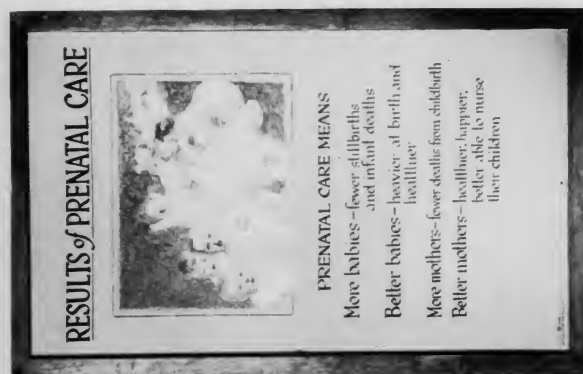 RESULTS of PRENATAL CARE
PRENATAL CARE MEANS
More babies - fewer stillbirths
and infant deaths
Better babies - heavier at birth and
healthier
More mothers - fewer deaths from childbirth
Better mothers - healthier, happier,
better able to nurse
their children